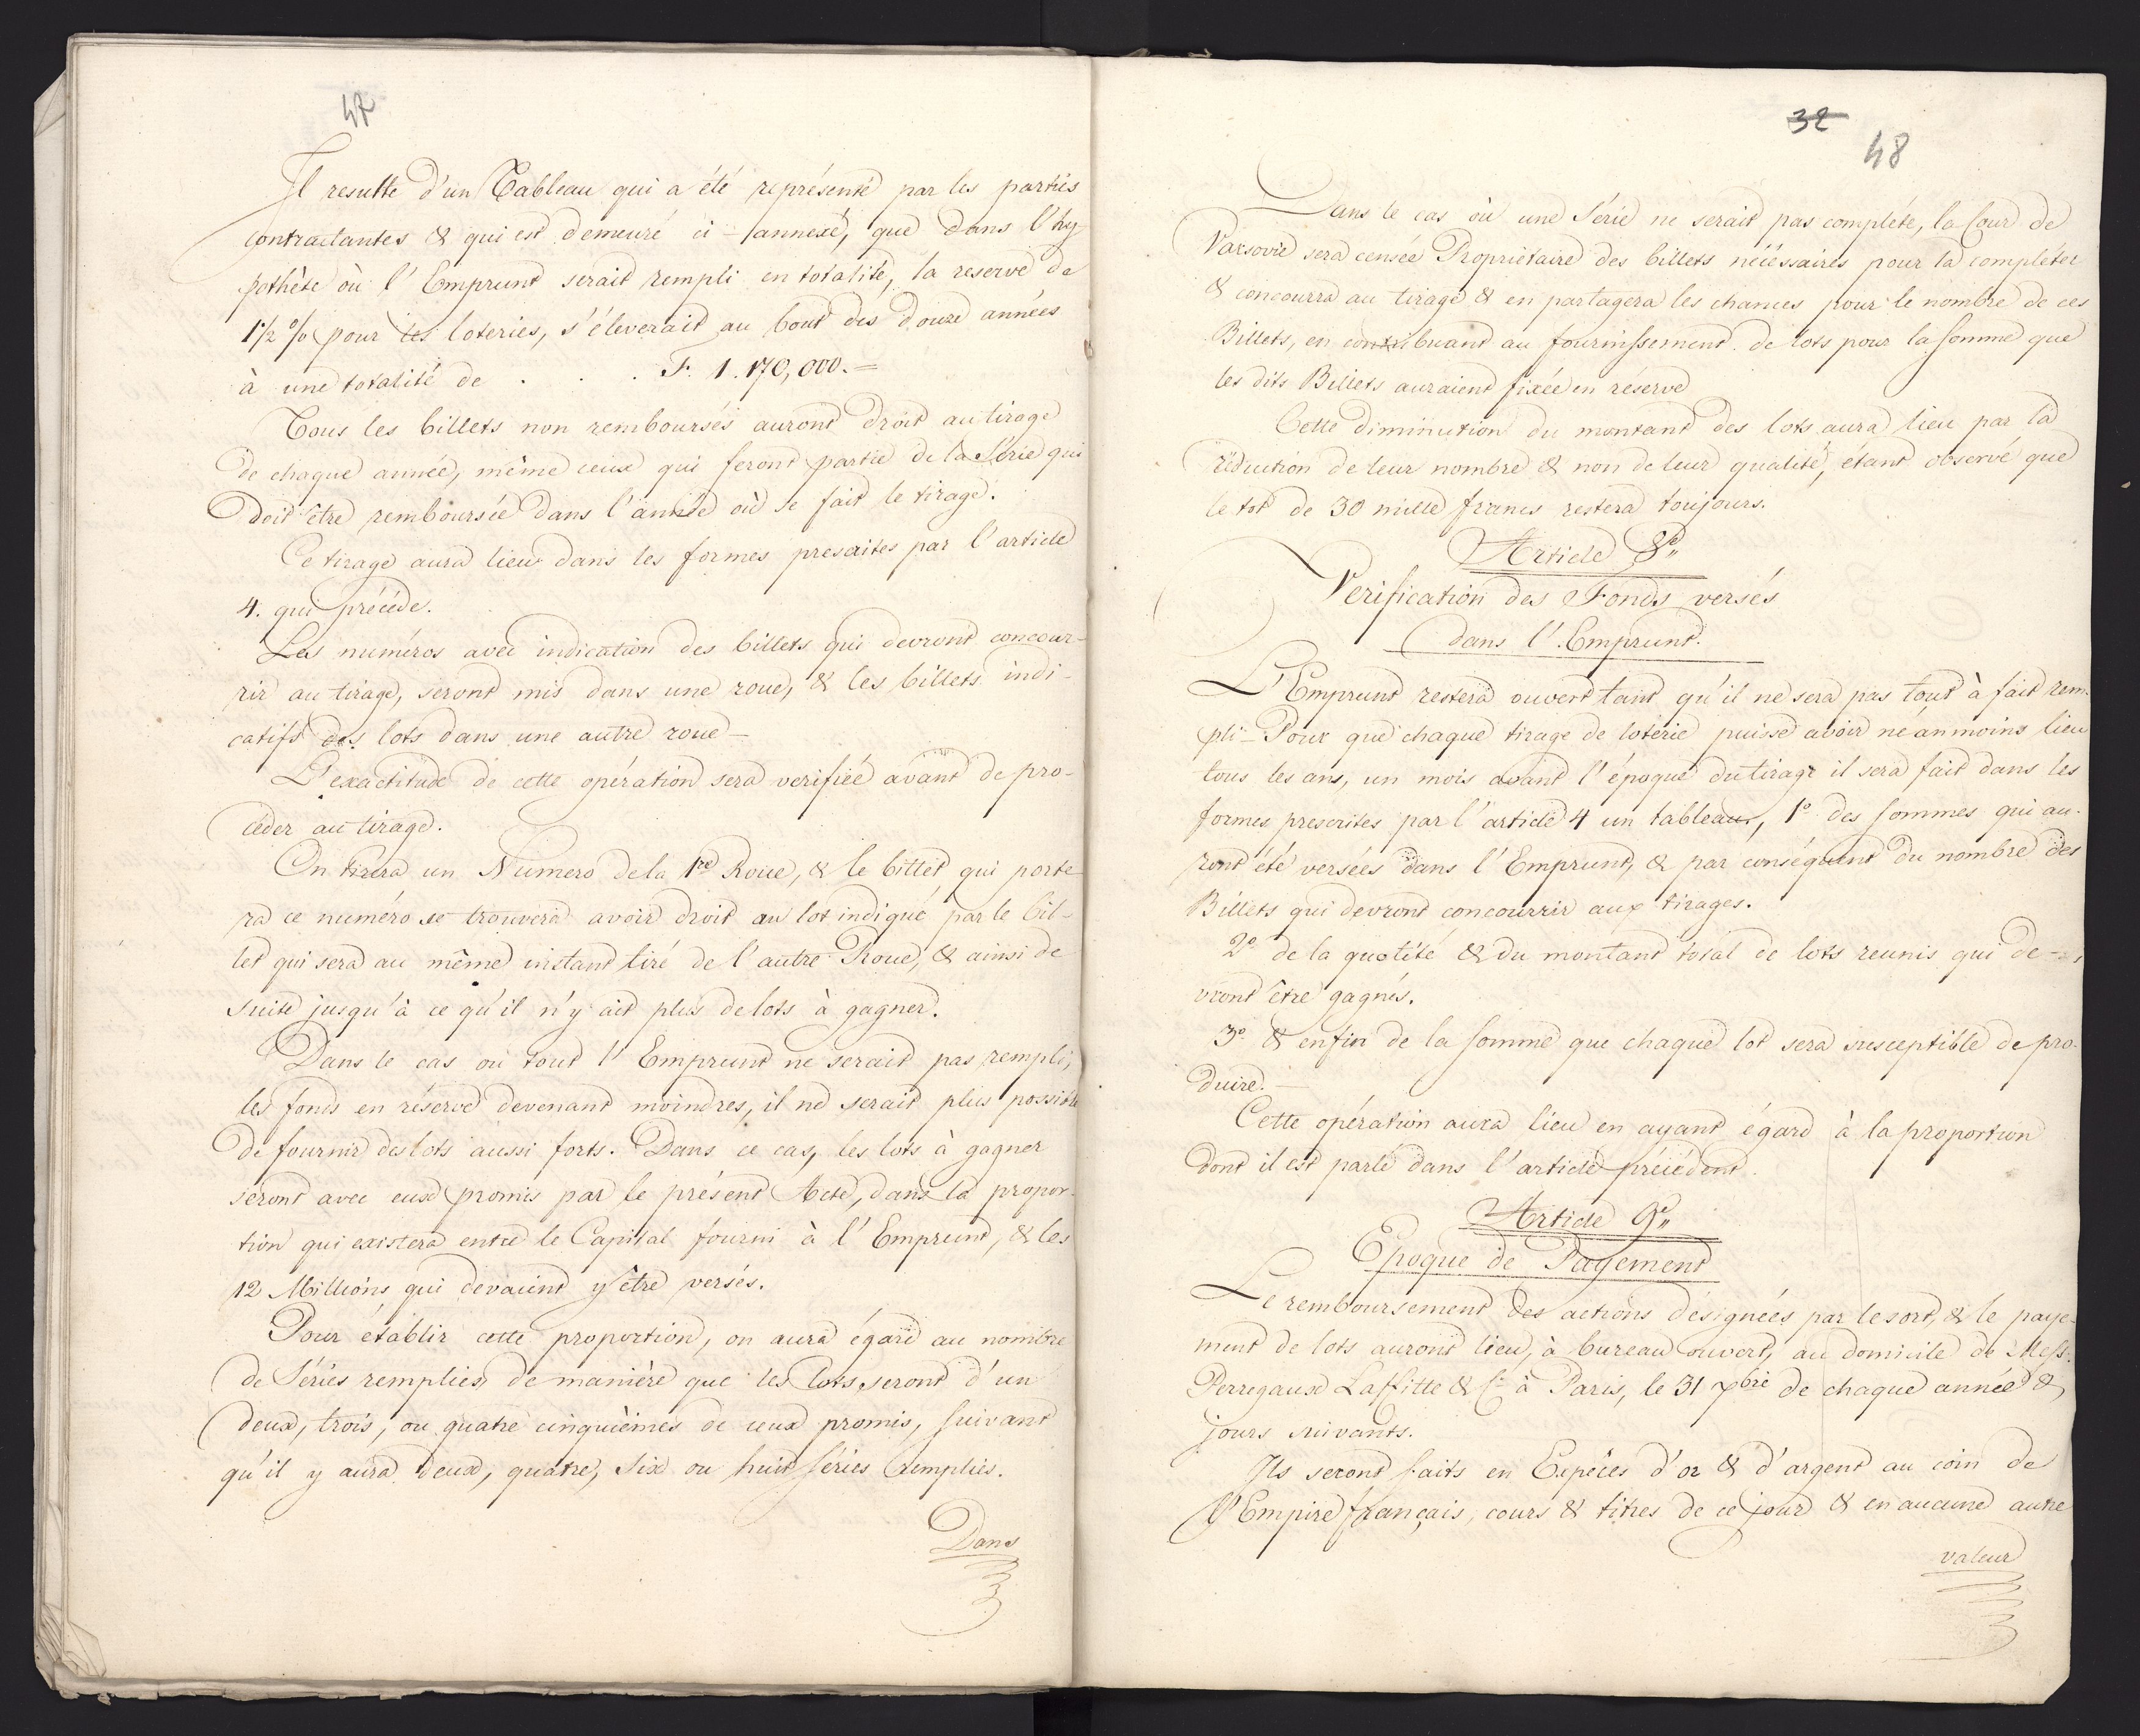 47
Il resulte d'un Tableau qui a été représenté par les parties
contractantes & qui est demeuré ci-annexé, que dans l'hy-
pothèse où l'Emprunt serait rempli en totalité, la reserve de
1 1/2 % pour les loteries, s'éleverait au bout des douze années
à une totalité de . . . F. 1.170,000.=
Tous les billets non remboursés auront droit au tirage
de chaque année, même ceux qui feront partie de la Série qui
doit être remboursée dans l'année où se fait le tirage.
Ce tirage aura lieu dans les formes prescrites par l'article
4. qui précéde.
Les numéros avec indication des billets qui devront concour-
rir au tirage, seront mis dans une roue, & les billets indi-
catifs des lots dans une autre roue -
L'exactitude de cette opération sera verifiée avant de pro-
céder au tirage.
On tirera un Numero de la 1re Roue, & le billet qui porte
ra ce numéro se trouvera avoir droit au lot indiqué par le bil-
let qui sera au même instant tiré de l'autre Roue, & ainsi de
suite jusqu'à ce qu'il n'y ait plus de lots à gagner.
Dans le cas où tout l'Emprunt ne serait pas rempli,
les fonds en réserve devenant moindres, il ne serait plus possible
de fournir des lots aussi forts. Dans ce cas, les lots à gagner
seront avec eux promis par le présent Acte, dans la propor-
tion qui existera entre le Capital fourni à l'Emprunt, & les
12 Millions qui devaient y être versés.
Pour établir cette proportion, on aura égard au nombre
de Séries remplies, de manière que les lots seront d'un
deux, trois, ou quatre cinquièmes de ceux promis, suivant
qu'il y aura deux, quatre, six ou huit séries remplies.
Dans
32
48
Dans le cas où une Série ne serait pas complète, la Cour de
Varsovie sera censée Propriétaire des billets nécéssaires pour la compléter
& concourra au tirage & en partagera les chances pour le nombre de ces
Billets, en contribuant au fournissement de lots pour la somme que
les dits Billets auraient fixée en réserve
Cette diminution du montant des lots aura lieu par la
réduction de leur nombre & non de leur qualité, étant observé que
le lot de 30 mille francs restera toujours.
Article 8e
Verification des Fonds versés
dans l'Emprunt.
L'Emprunt restera ouvert tant qu'il ne sera pas tout à fait rem-
pli - Pour que chaque tirage de loterie puisse avoir néanmoins lieu
tous les ans, un mois avant l'époque du tirage il sera fait dans les
formes prescrites par l'article 4 un tableau, 1o des sommes qui au-
ront été versées dans l'Emprunt, & par conséquent du nombre des
Billets qui devront concourrir aux tirages.
2o de la quotité & du montant total de lots reunis qui de-
vront être gagnés.
3o & enfin de la somme que chaque lot sera susceptible de pro-
duire. -
Cette opération aura lieu en ayant égard à la proportion
dont il est parlé dans l'article précédent.
Article 9e
Epoque de Payement
Le remboursement des actions désignées par le sort, & le paye-
ment de lots auront lieu, à bureau ouvert, au domicile de Mess.
Perregaux Laffitte & Cie à Paris, le 31 Xbre de chaque année &
jours suivants.
Ils seront faits en Espèces d'or & d'argent au coin de
l'Empire français, cours & titres de ce jour & en aucune autre
valeur